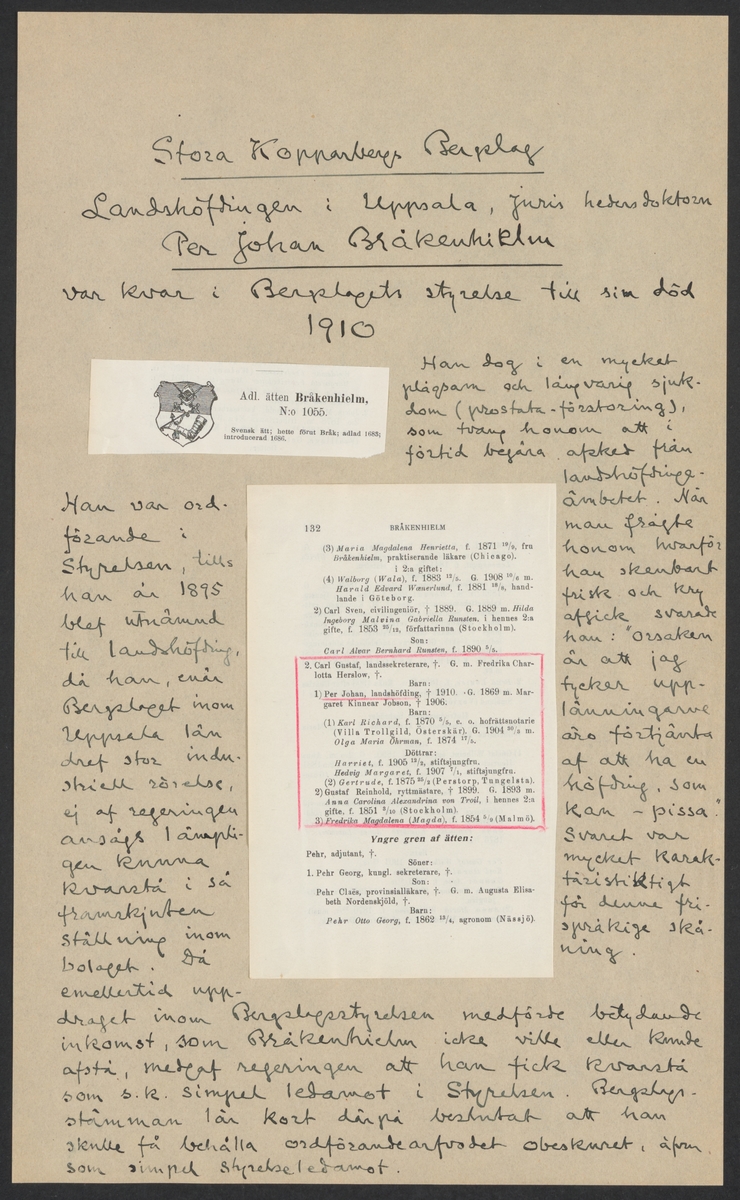 Stora Kopparbergs Bergslag
Landshöfdingen i Uppsala, juris hedersdoktorn
Per Johan Bråkenhielm
var kvar i Bergslagets styrelse till sin död
1910
Adl. ätten Bråkenhielm,
N:o 1055.
Svensk ätt; hette förut Bråk; adlad 1683;
introducerad 1686.
Han dog i en mycket
plågsam och långvarig sjuk-
dom (prostata-förstoring),
som tvang honom att i
förtid begära afsked från
landshöfdinge-
ämbetet. När
man frågte
honom hvarför
han skenbart
frisk och kry
afgick svarade
han: "Orsaken
är att jag
tycker upp-
länningarne
äro förtjänta
af att ha en
höfding, som
kan - pissa."
Svaret var
mycket karak-
täristiktigt
för denne fri-
språkige skå-
ning.
Han var ord-
förande i
Styrelsen, tills
han år 1895
blef utnämnd
till landshöfding,
då han, enär
Bergslaget inom
Uppsala län
dref stor indu-
striell rörelse,
ej af regeringen
ansågs lämpli-
gen kunna
kvarstå i så
framskjuten
ställning inom
bolaget. Då
emellertid upp-
draget inom Bergslagsstyrelsen medförde betydande
inkomst, som Bråkenhielm icke ville eller kunde
afstå, medgaf regeringen att han fick kvarstå
som s.k. simpel ledamot i Styrelsen. Bergslags-
stämman lär kort därpå beslutat att han
skulle få behålla ordförandearfvodet obeskuret, äfven
som simpel styrelseledamot.
132 BRÅKENHIELM
(3) Maria Magdalena Henrietta, f. 1871 19/9, fru
Bråkenhielm, praktiserande läkare (Chicago).
i 2:a giftet:
(4) Walborg (Wala), f. 1883 13/5. G. 1908 10/6 m.
Harald Edvard Wænerlund, f. 1881 18/9, hand-
lande i Göteborg.
2) Carl Sven, civilingeniör, † 1889. G. 1889 m. Hilda
Ingeborg Malvina Gabriella Runsten, i hennes 2:a
gifte, f. 1853 25/12, författarinna (Stockholm).
Son:
Carl Alvar Bernhard Runsten, f. 1890 5/5.
2. Carl Gustaf, landssekreterare, †. G. m. Fredrika Char-
lotta Herslow, †.
Barn:
1) Per Johan, landshöfding, † 1910. G. 1869 m. Mar-
garet Kinnear Jobson, † 1906.
Barn:
(1) Karl Richard, f. 1870 5/5, e. o. hofrättsnotarie
(Villa Trollgild, Österskär). G. 1904 30/5 m.
Olga Maria Öhrman, f. 1874 17/5.
Döttrar:
Harriet, f. 1905 12/2, stiftsjungfru.
Hedvig Margaret, f. 1907 7/1, stiftsjungfru.
(2) Gertrude, f. 1875 25/2 (Perstorp, Tungelsta).
2) Gustaf Reinhold, ryttmästare, † 1899. G. 1893 m.
Anna Carolina Alexandrina von Troil, i hennes 2:a
gifte, f. 1851 3/10 (Stockholm).
3) Fredrika Magdalena (Magda), f. 1854 5/8 (Malmö).
Yngre gren af ätten:
Pehr, adjutant, †.
Söner:
1. Pehr Georg, kungl. sekreterare, †.
Son:
Pehr Claës, provinsialläkare, †. G. m. Augusta Elisa-
beth Nordenskjöld, †.
Barn:
Pehr Otto Georg, f. 1862 13/4, agronom (Nässjö).